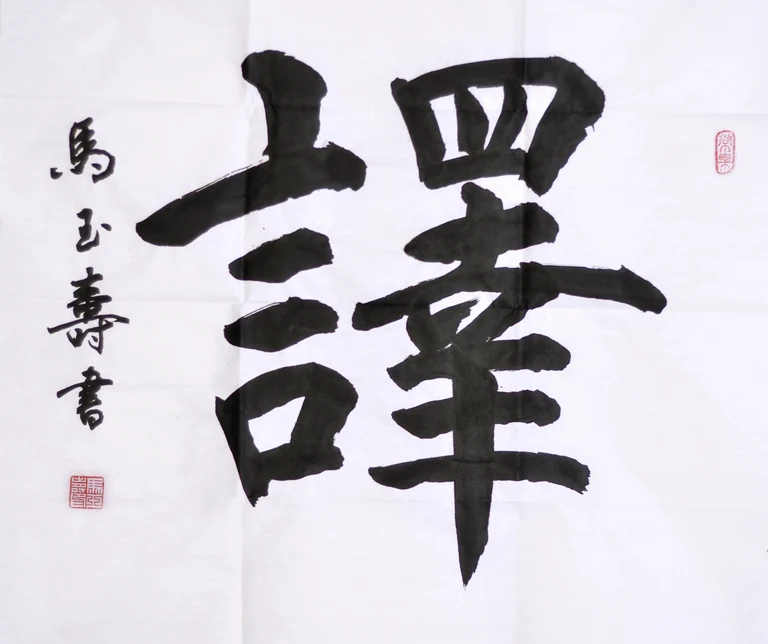 譯
馬玉壽書